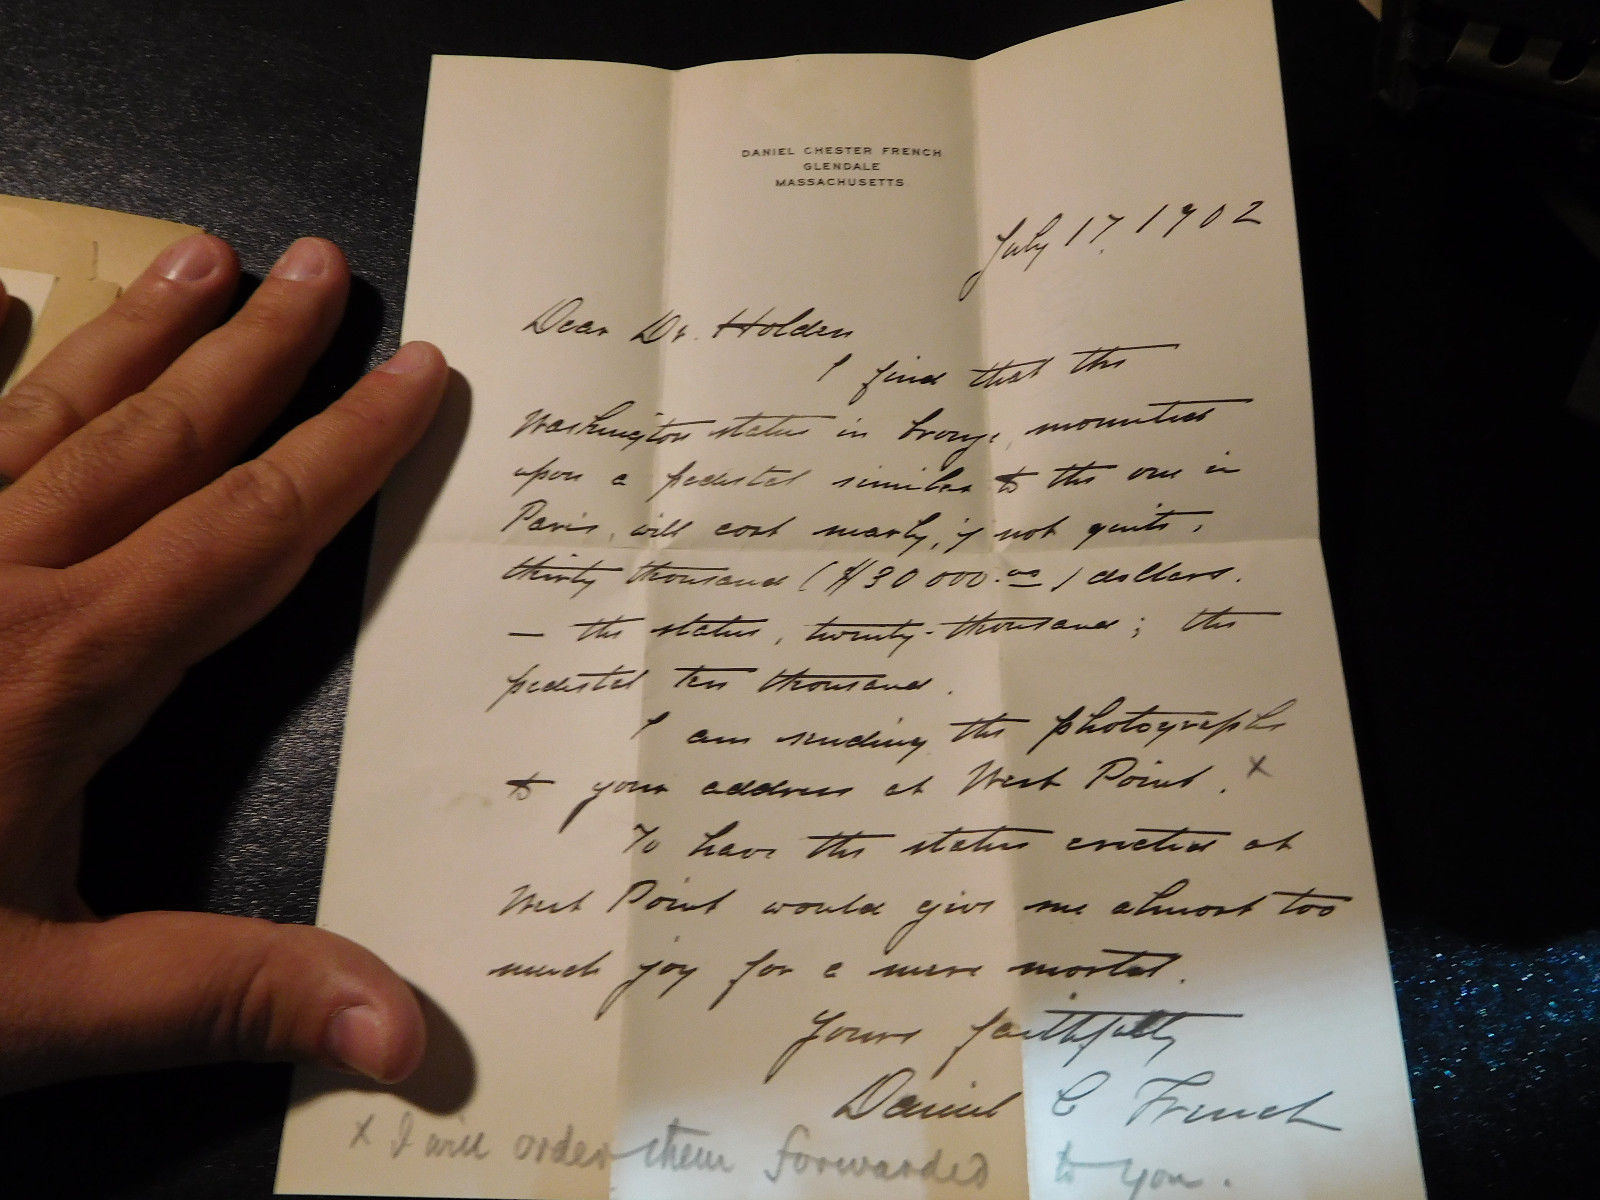 DANIEL CHESTER FRENCH
GLENDALE
MASSACHUSETTS
July 17, 1902
Dear Dr. Holden
I find that the
Washington statue in bronze, mounted
upon a pedestal similar to the one in
Paris, will cost nearly, if not quite,
thirty thousand ($30 000.00) dollars.
— the statue, twenty-thousand; the
pedestal ten thousand.
I am sending the photographs
to your address at West Point. x
To have the statue erected at
West Point would give me almost too
much joy for a mere mortal.
Yours faithfully
Daniel C French
x I will order them forwarded to you.